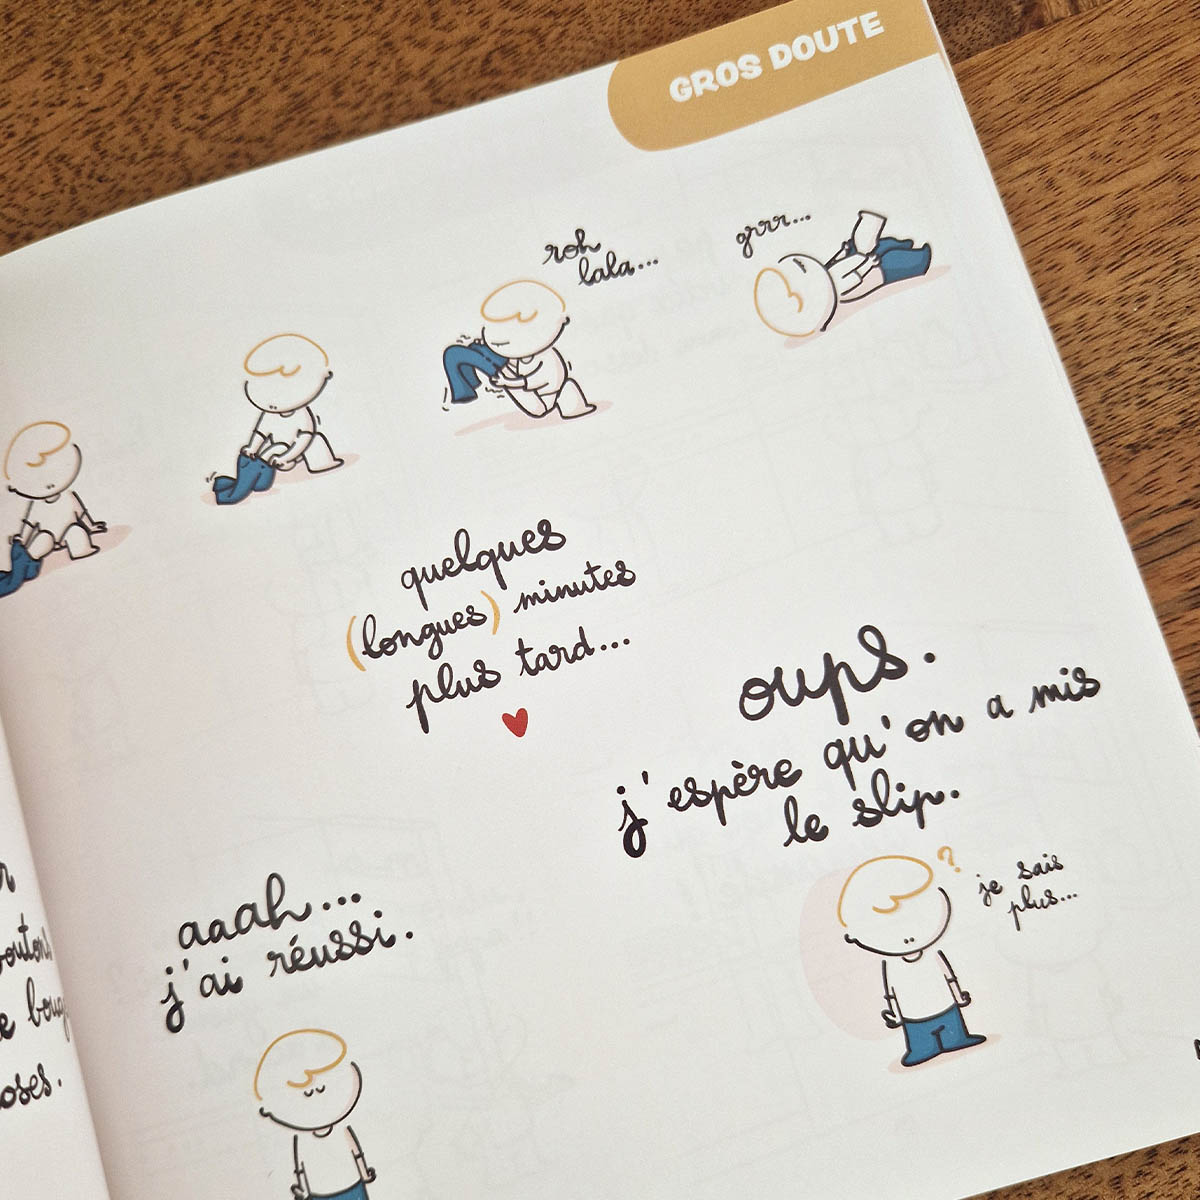 GROS DOUTE
roh
lala...
grrr...
quelques
(longues) minutes
plus tard...
oups.
j'espère qu'on a mis
le slip.
?
je sais
plus...
aaah...
j'ai réussi.
oses.